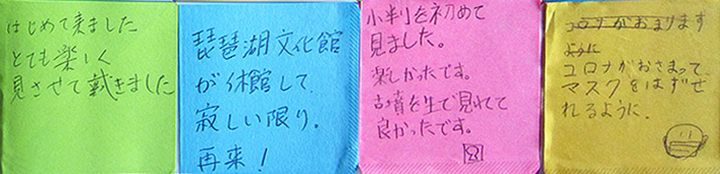 はじめて来ました
とても楽しく
見させて戴きました
琵琶湖文化館
が休館して
寂しい限り。
再来！
小判を初めて
見ました。
楽しかったです。
古墳を生で見れて
良かったです。
コロナがおさまります
ように
コロナがおさまって
マスクをはずせ
れるように。